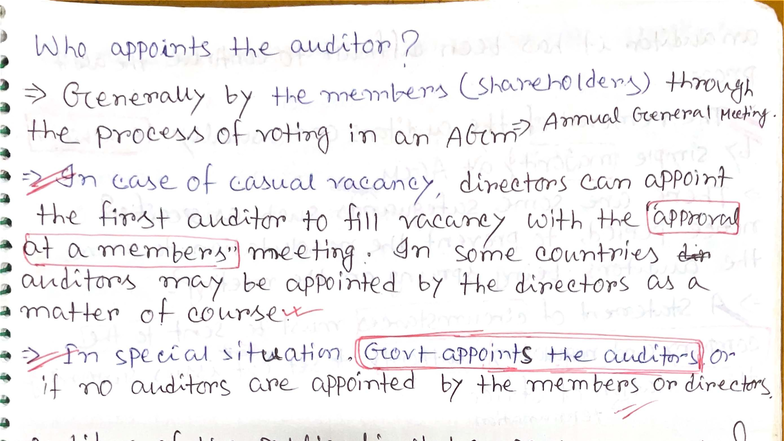 Who appoints the auditor?
⇒ Generally by the members (shareholders) through
the process of voting in an AGM ⇒ Annual General Meeting.
⇒ In case of casual vacancy, directors can appoint
the first auditor to fill vacancy with the "approval
at a members" meeting. In some countries
auditors may be appointed by the directors as a
matter of course.
⇒ In special situation. Govt appoints the auditors or
if no auditors are appointed by the members or directors.